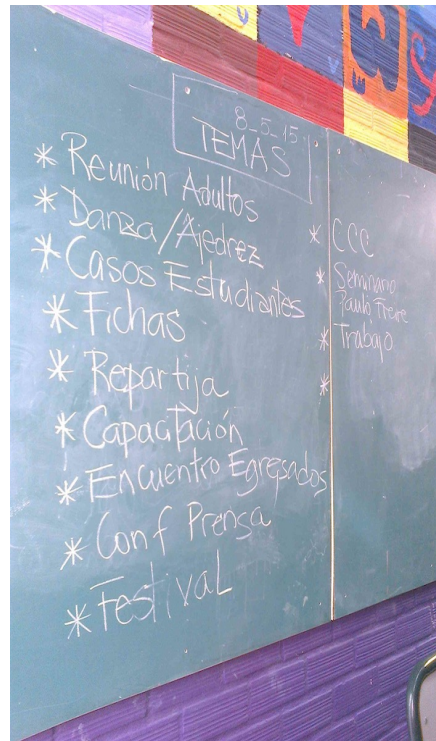 8-5-15
TEMAS
* Reunión Adultos
* Danza/Ajedrez
* Casos Estudiantes
* Fichas
* Repartija
* Capacitación
* Encuentro Egresados
* Conf Prensa
* Festival
* CCC
* Seminario
Paulo Freire
* Trabajo
*